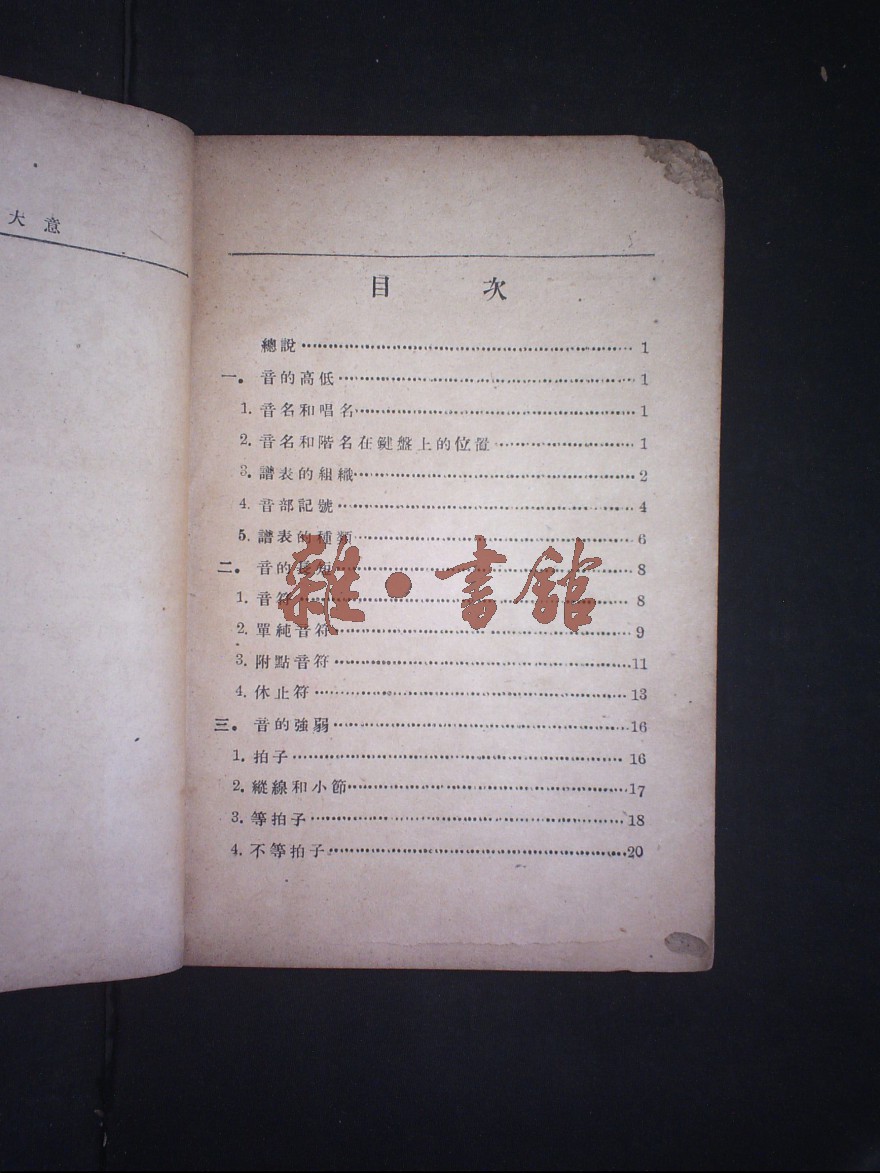 大意
目次
總說 1
一. 音的高低 1
1. 音名和唱名 1
2. 音名和階名在鍵盤上的位置 1
3. 譜表的組織 2
4. 音部記號 4
5. 譜表的種類 6
二. 音的長短 8
1. 音符 8
2. 單純音符 9
3. 附點音符 11
4. 休止符 13
三. 音的強弱 16
1. 拍子 16
2. 縱線和小節 17
3. 等拍子 18
4. 不等拍子 20
雜·書館